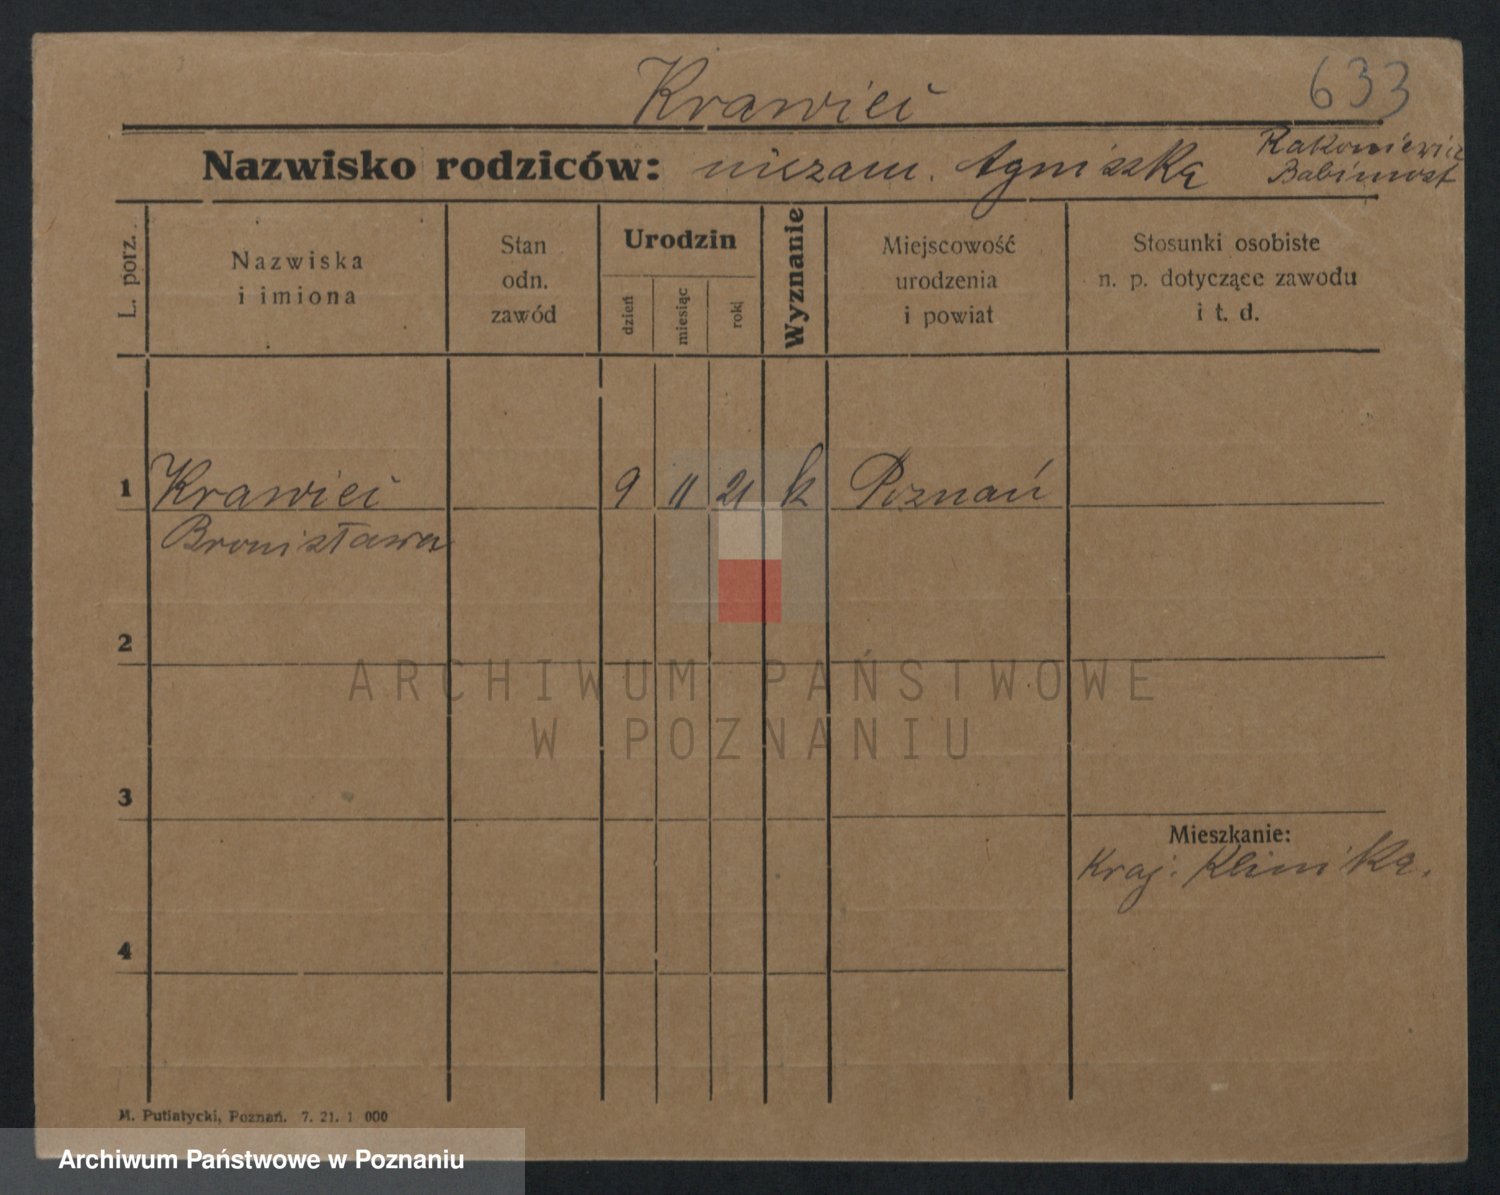 Krawiec
633
Nazwisko rodziców: niezam. Agniszka
Rakoniewic
Babimost
L. porz.
Nazwiska
i imiona
Stan
odn.
zawód
Urodzin
dzień
miesiąc
rok
Wyznanie
Miejscowość
urodzenia
i powiat
Stosunki osobiste
n. p. dotyczące zawodu
i t. d.
1 Krawiec 9 11 21 k Poznań
Bronisława
2
3
4
Mieszkanie:
Kraj. Klinika.
ARCHIWUM PAŃSTWOWE
W POZNANIU
M. Putiatycki, Poznań. 7. 21. 1 000
Archiwum Państwowe w Poznaniu